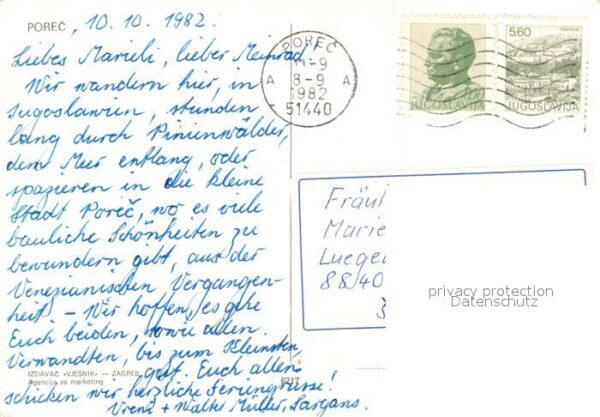 POREČ, 10.10.1982.
Liebes Marieli, lieber Meinrad!
Wir wandern hier, in
Jugoslawien, stunden
lang durch Pinienwälder,
dem Meer entlang, oder
spazieren in die kleine
Stadt Poreč, wo es viele
bauliche Schönheiten zu
bewundern gibt, aus der
Venezianischen Vergangen-
heit. – Wir hoffen, es gehe
Euch beiden, sowie allen
Verwandten, bis zum Kleinsten,
gut. Euch allen
schicken wir herzliche Feriengrüsse!
Vreni + Walter Müller, Sargans.
IZDAVAČ »VJESNIK« — ZAGREB
Agencija za marketing
6217
POREČ
11-9
A 8-9 A
1982
51440
JUGOSLAVIJA
5.60
JUGOSLAVIJA
Fräul
Marie
Luege
8840
privacy protection
Datenschutz